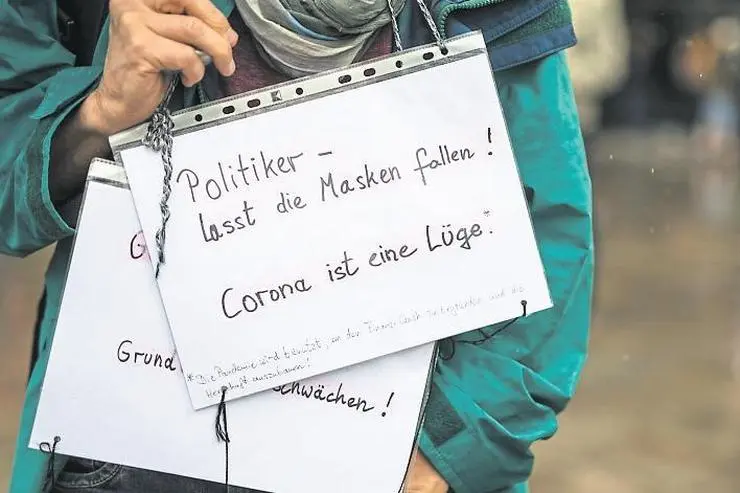 Politiker -
lasst die Masken fallen!
Corona ist eine Lüge.*
*Die Pandemie wird benutzt, um den Finanz-Crash zu begründen und die
Herrschaft auszubauen!
G
Grund
chwächen!